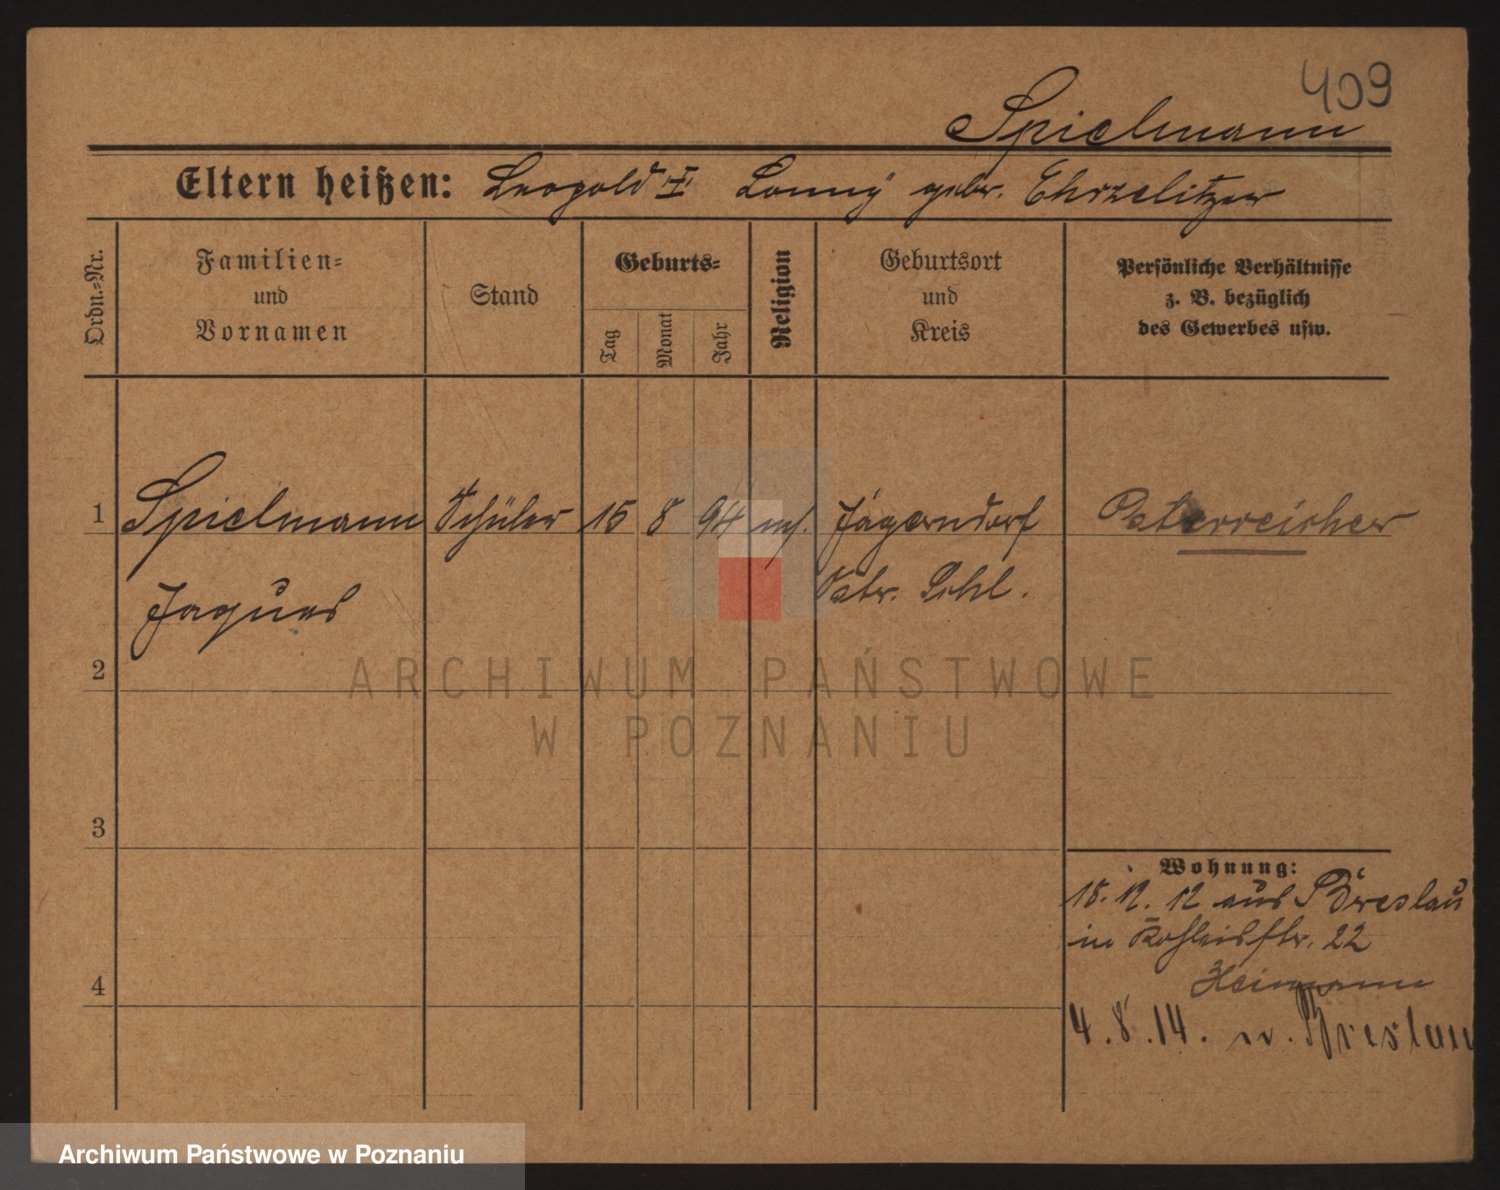 409
Spielmann
Eltern heißen: Leopold Lonny gebr. Ehrzelitzer
Ordn.=Nr.
Familien=
und
Vornamen
Stand
Geburts=
Tag
Monat
Jahr
Religion
Geburtsort
und
Kreis
Persönliche Verhältnisse
z. B. bezüglich
des Gewerbes usw.
1 Spielmann Schüler 15 8 94 mos. Jägerndorf Österreicher
Jaques Östr. Schl.
2
3
4
Wohnung:
15. 12. 12 aus Breslau
in 22
Heimann
4. 8. 14. n. Breslau
ARCHIWUM PAŃSTWOWE
W POZNANIU
Archiwum Państwowe w Poznaniu